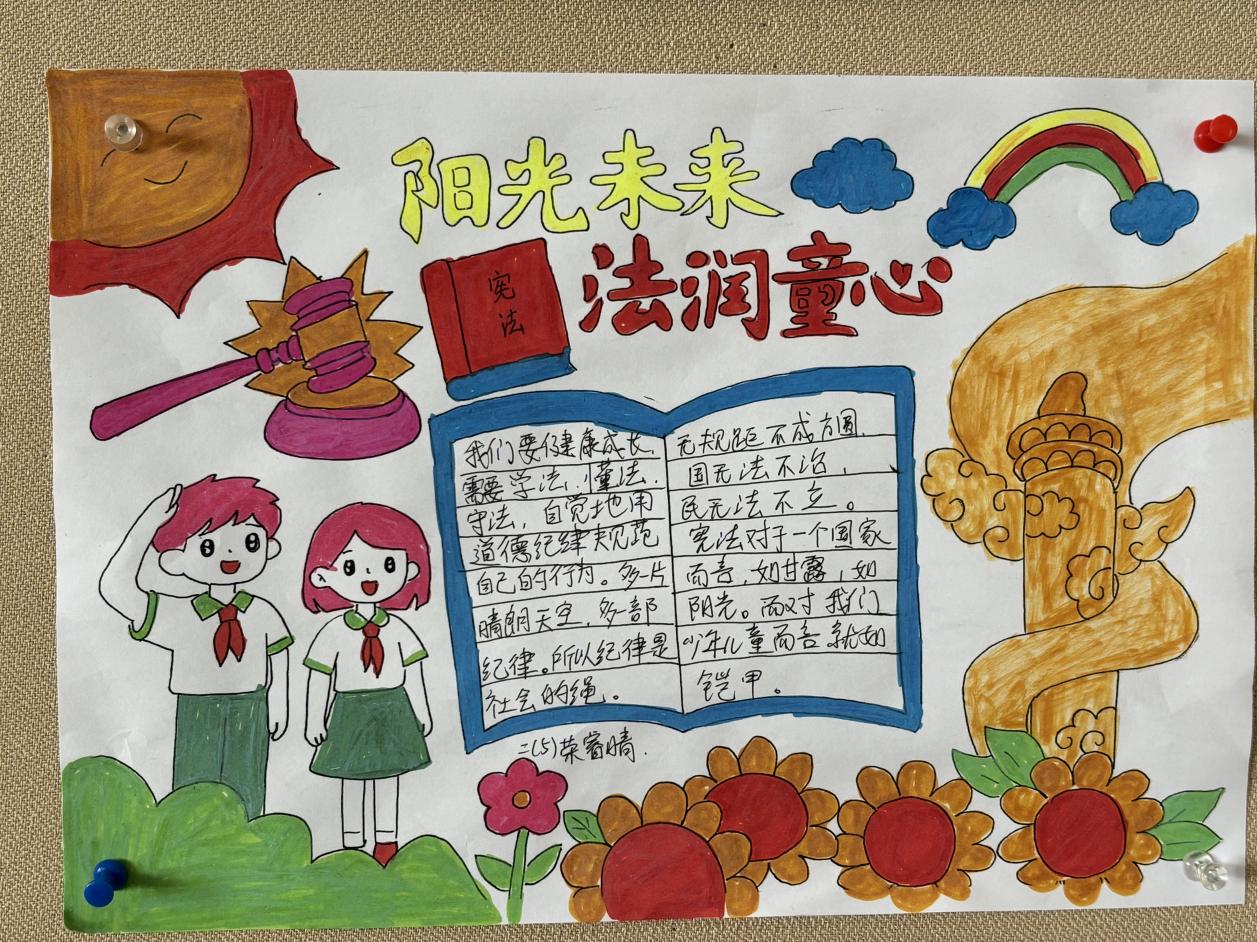 阳光未来
法润童心
宪
法
我们要健康成长,
需要学法,懂法,
守法,自觉地用
道德纪律规范
自己的行为。多一片
晴朗天空,多一部
纪律。所以纪律是
社会的绳。
无规距不成方圆,
国无法不治,
民无法不立。
宪法对于一个国家
而言,如甘露,如
阳光。而对我们
少年儿童而言就如
铠甲。
二(5)荣睿晴.